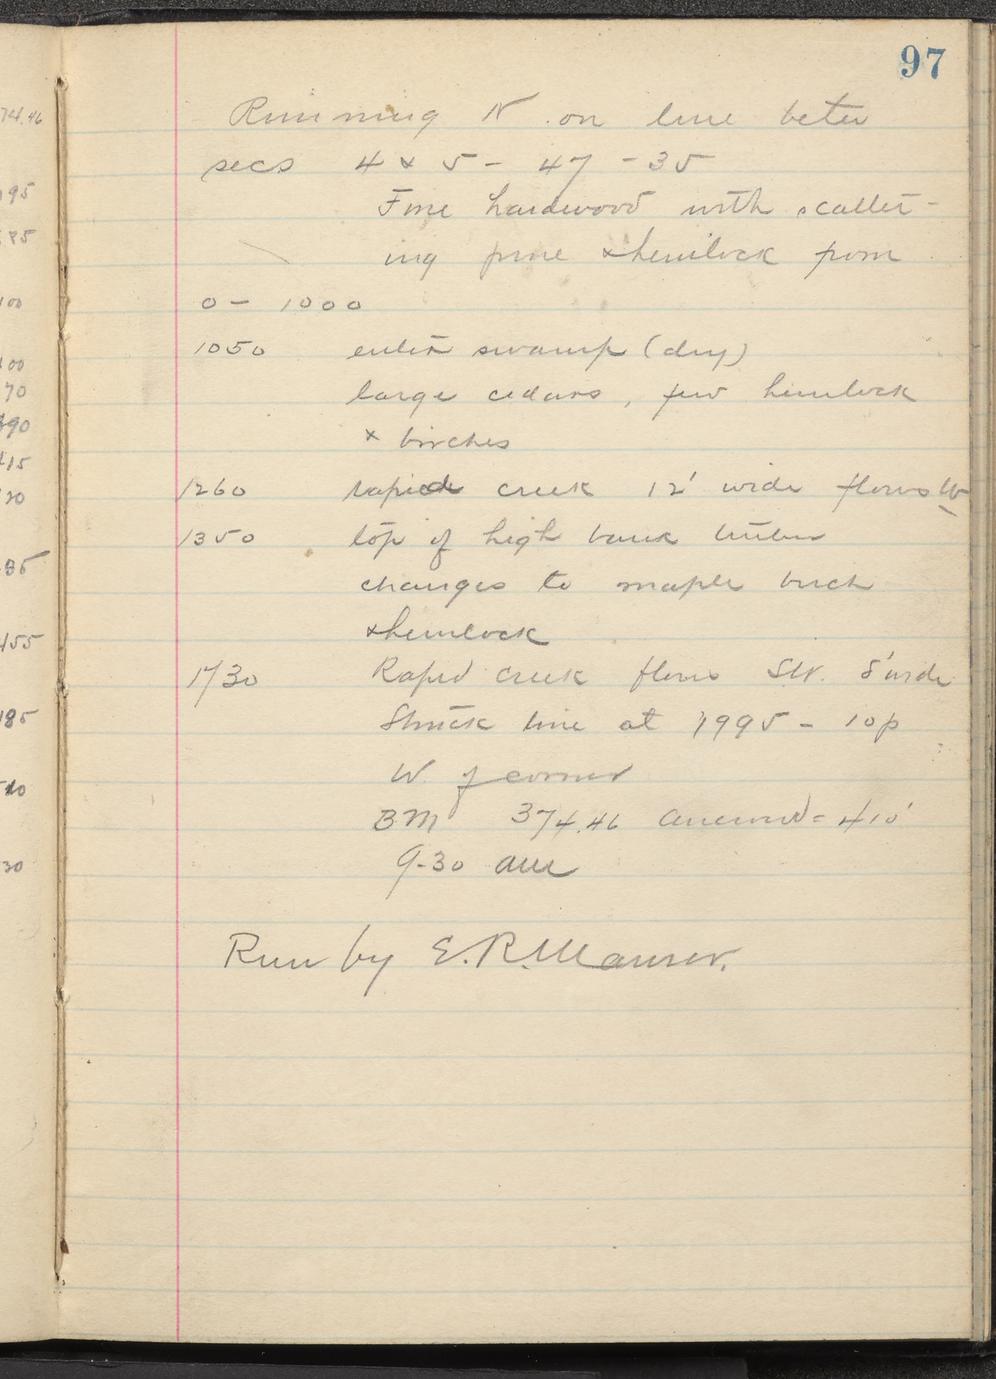 97
Running N. on line betw
secs 4 & 5 - 47 - 35
Fine hardwood with scatter-
ing pine & hemlock from
0 - 1000
1050 enter swamp (dry)
large cedars, few hemlock
& birches
1260 rapid creek 12' wide flows W
1350 top of high bank timber
changes to maple birch
& hemlock
1730 Rapid creek flows SW. 8' wide
Struck line at 1995 - 10p
W of corner
BM 374.46 aneroid = 410'
9-30 am
Run by E.R. Maurer.
74.46
95
100
00
70
490
415
20
455
185
30